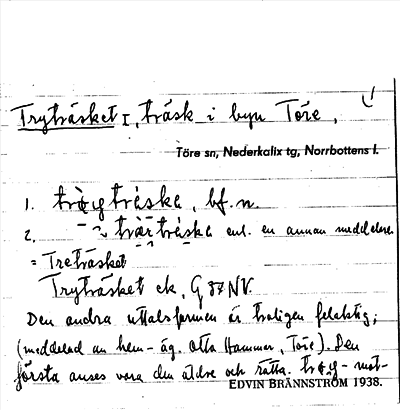 Tryträsket I, träsk i byn Töre,
Töre sn, Nederkalix tg, Norrbottens l.
1. bf. n.
2. enl. en annan meddelare
= Treträsket
Tryträsket ek. G 87 NV.
Den andra uttalsformen är troligen felaktig;
(meddelad av hem.-äg. Otto Hammar, Töre). Den
första anses vara den äldre och rätta.
EDVIN BRÄNNSTRÖM 1938.